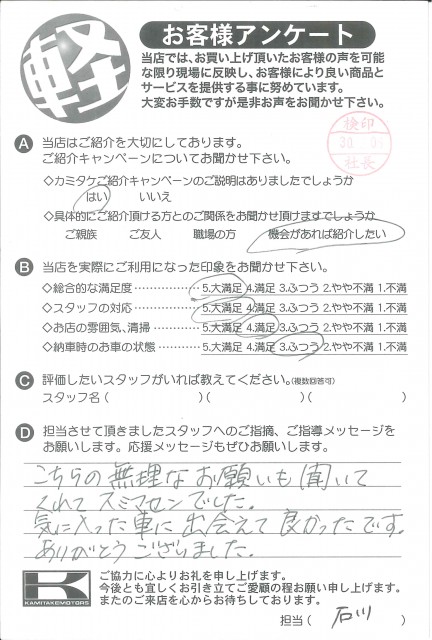 軽
お客様アンケート
当店では、お買い上げ頂いたお客様の声を可能
な限り現場に反映し、お客様により良い商品と
サービスを提供する事に努めています。
大変お手数ですが是非お声をお聞かせ下さい。
検印
社長
A 当店はご紹介を大切にしております。
ご紹介キャンペーンについてお聞かせ下さい。
◇カミタケご紹介キャンペーンのご説明はありましたでしょうか
はい いいえ
◇具体的にご紹介頂ける方とのご関係をお聞かせ頂けますでしょうか
ご親族 ご友人 職場の方 機会があれば紹介したい
B 当店を実際にご利用になった印象をお聞かせ下さい。
◇総合的な満足度……………5.大満足 4.満足 3.ふつう 2.やや不満 1.不満
◇スタッフの対応……………5.大満足 4.満足 3.ふつう 2.やや不満 1.不満
◇お店の雰囲気、清掃…………5.大満足 4.満足 3.ふつう 2.やや不満 1.不満
◇納車時のお車の状態…………5.大満足 4.満足 3.ふつう 2.やや不満 1.不満
C 評価したいスタッフがいれば教えてください。(複数回答可)
スタッフ名( )( )( )
D 担当させて頂きましたスタッフへのご指摘、ご指導メッセージを
お願いします。応援メッセージもぜひお願いします。
こちらの無理なお願いも聞いて
くれてスミマセンでした。
気に入った車に出会えて良かったです。
ありがとうございました。
K
KAMITAKEMOTORS
ご協力に心よりお礼を申し上げます。
今後とも宜しくお引き立てご愛顧の程お願い申し上げます。
またのご来店を心からお待ちしております。
担当( 石川 )